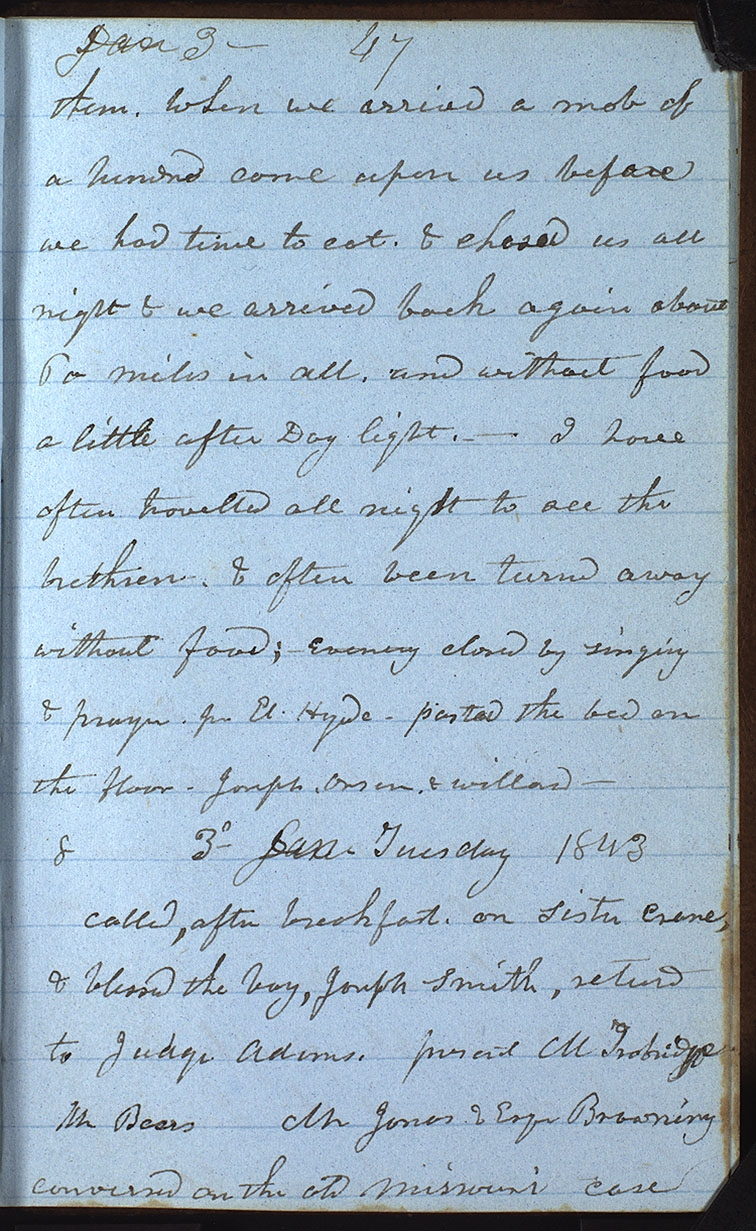 Jan 3— 47
them. when we arrived a mob of
a hundred come upon us before
we had time to eat. & chased us all
night & we arrived back again about
60 miles in all. and without food
a little after Day light.— I have
often travelled all night to see the
brethren. & often been turned away
without food;— Evening closed by singing
& prayer. pr El. Hyde— parted the bed on
the floor— Joseph. Orson. & willard—
8 3d— Jan. Tuesday 1843
called, after breakfast. on sister Crane,
& blessed the boy, Joseph Smith, returd
to Judge Adams. present Mr Trobridge
Mr Beers Mr Jonas & Esqr Browning
conversed on the old missouri case